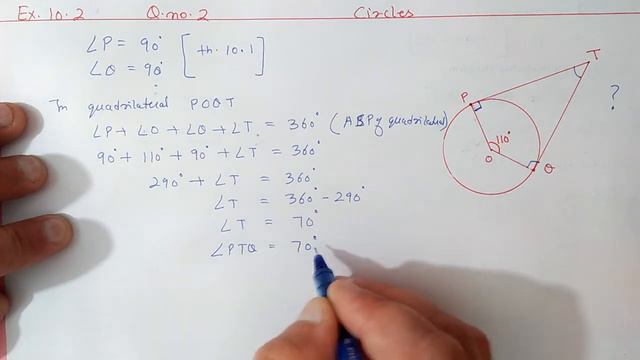 Ex. 10.2 Q.no. 2 Circles
∠P = 90° [th. 10.1]
∠Q = 90°
In quadrilateral POQT
∠P + ∠O + ∠Q + ∠T = 360° (ASP of quadrilateral)
90° + 110° + 90° + ∠T = 360°
290° + ∠T = 360°
∠T = 360° - 290°
∠T = 70°
∠PTQ = 70°
T
P
?
110°
O
Q